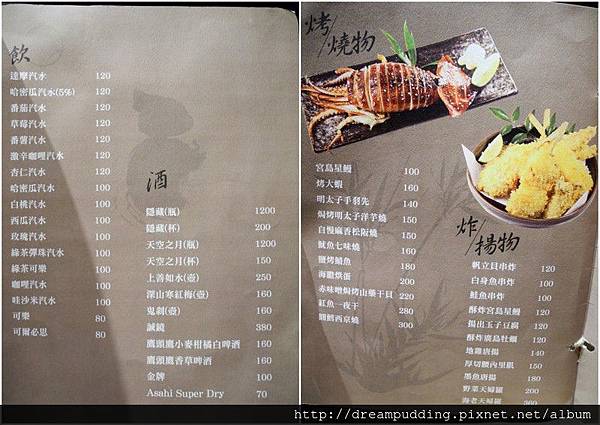 飲
達摩汽水 120
哈密瓜汽水(5%) 120
番茄汽水 120
草莓汽水 120
番薯汽水 120
激辛咖哩汽水 120
杏仁汽水 120
哈密瓜汽水 100
白桃汽水 100
西瓜汽水 100
玫瑰汽水 100
綠茶彈珠汽水 100
綠茶可樂 100
咖哩汽水 100
哇沙米汽水 100
可樂 80
可爾必思 80
酒
隱藏(瓶) 1200
隱藏(杯) 200
天空之月(瓶) 1200
天空之月(杯) 150
上善如水(壺) 250
深山寒紅梅(壺) 160
鬼剃(壺) 160
誠鏡 380
鷹頭鷹小麥柑橘白啤酒 160
鷹頭鷹香草啤酒 160
金牌 100
Asahi Super Dry 70
烤/燒物
宮島星鰻 100
烤大蝦 160
明太子手羽先 140
焗烤明太子洋芋燒 150
自慢麻香松阪燒 150
魷魚七味燒 160
鹽烤鯖魚 180
海膽烘蛋 200
赤味噌焗烤山藥干貝 220
紅魚一夜干 280
圓鱈西京燒 300
炸/揚物
帆立貝串炸 120
白身魚串炸 120
鮭魚串炸 90
酥炸宮島星鰻 120
揚出玉子豆腐 120
酥炸廣島牡蠣 140
地雞唐揚 140
厚切腰內里肌 150
墨魚唐揚 180
野菜天婦羅 200
海老天婦羅 360
http://dreampudding.pixnet.net/album